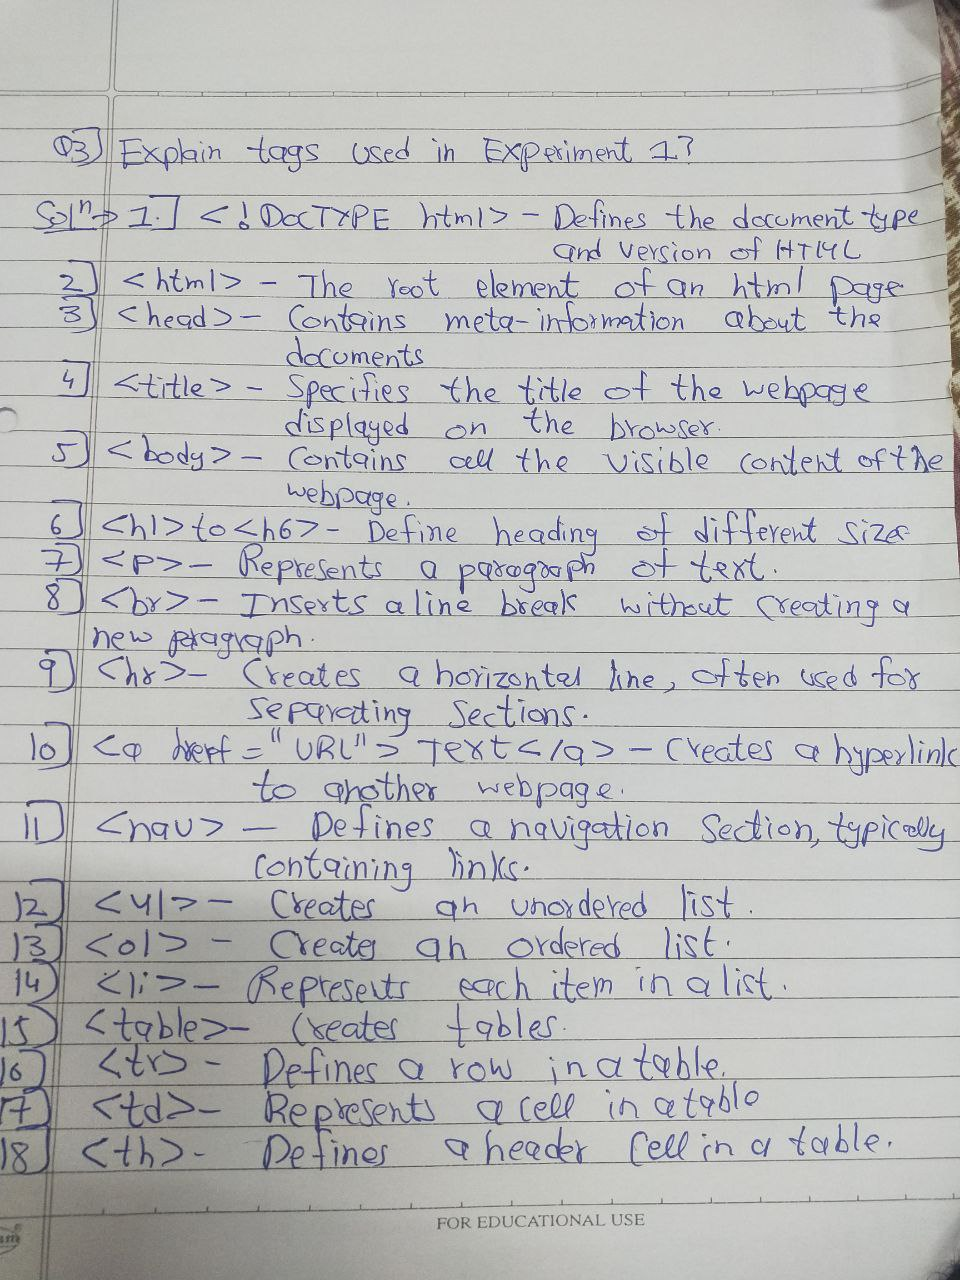 Q3] Explain tags used in Experiment 1?
Solⁿ→ 1.] <!DOCTYPE html> - Defines the document type
and version of HTML
2] <html> - The root element of an html page
3] <head> - Contains meta-information about the
documents
4] <title> - Specifies the title of the webpage
displayed on the browser.
5] <body> - Contains all the visible content of the
webpage.
6] <h1> to <h6> - Define heading of different sizes
7] <p> - Represents a paragraph of text.
8] <br> - Inserts a line break without creating a
new paragraph.
9] <hr> - Creates a horizontal line, often used for
separating sections.
10] <a href = "URL"> Text </a> - Creates a hyperlink
to another webpage.
11] <nav> - Defines a navigation section, typically
containing links.
12] <ul> - Creates an unordered list.
13] <ol> - Creates an ordered list.
14] <li> - Represents each item in a list.
15] <table> - Creates tables.
16] <tr> - Defines a row in a table.
17] <td> - Represents a cell in a table
18] <th> - Defines a header cell in a table.
FOR EDUCATIONAL USE